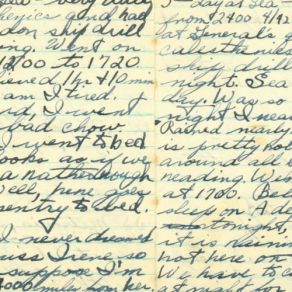 very
and had
don ship drill
ing. Went on
12/00 to 1720.
ieved, 1 hr & 10 min
am I tired.
rd, I went
bad chow.
I went to bed
looks as if we
a rather rough
Well, here goes
sentry to bed.
I never dreamed
miss Irene, so
suppose I'm
4000 miles from her.
day at sea -
from 2400
at General q
calesthenics
ship drill
night. Sea
day. Was so
night I nea
Rained nearly
is pretty ho
around all
heading. We
at 1700. Be
sleep on
tonight,
it is rainin
hot here on
We have to c
at night